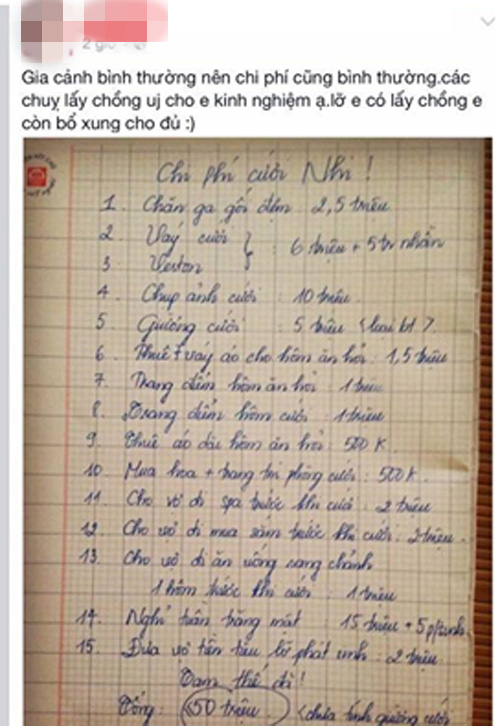 2 giờ
Gia cảnh bình thường nên chi phí cũng bình thường.các
chuỵ lấy chồng uj cho e kinh nghiệm ạ.lỡ e có lấy chồng e
còn bổ xung cho đủ :)
Chi phí cưới Nhi !
1. Chăn ga gối đệm 2,5 triệu
2. Váy cưới } : 6 triệu + 5tr nhẫn
3. Veston
4. Chụp ảnh cưới : 10 triệu
5. Giường cưới : 5 triệu (loại bt).
6. Thuê váy áo cho hôm ăn hỏi : 1,5 triệu
7. Trang điểm hôm ăn hỏi : 1 triệu
8. Trang điểm hôm cưới : 1 triệu
9. Thuê áo dài hôm ăn hỏi : 500 K.
10. Mua hoa + trang trí phòng cưới : 500 K.
11. Cho vợ đi spa trước khi cưới : 2 triệu
12. Cho vợ đi mua sắm trước khi cưới : 2 triệu.
13. Cho vợ đi ăn uống sang chảnh
1 hôm trước khi cưới : 1 triệu
14. Nghỉ tuần trăng mật : 15 triệu + 5 p/sinh
15. Đưa vợ tiền tiêu lỡ phát sinh : 2 triệu
Tạm thế đã !
Tổng : 50 triệu. (chưa tính giường cưới